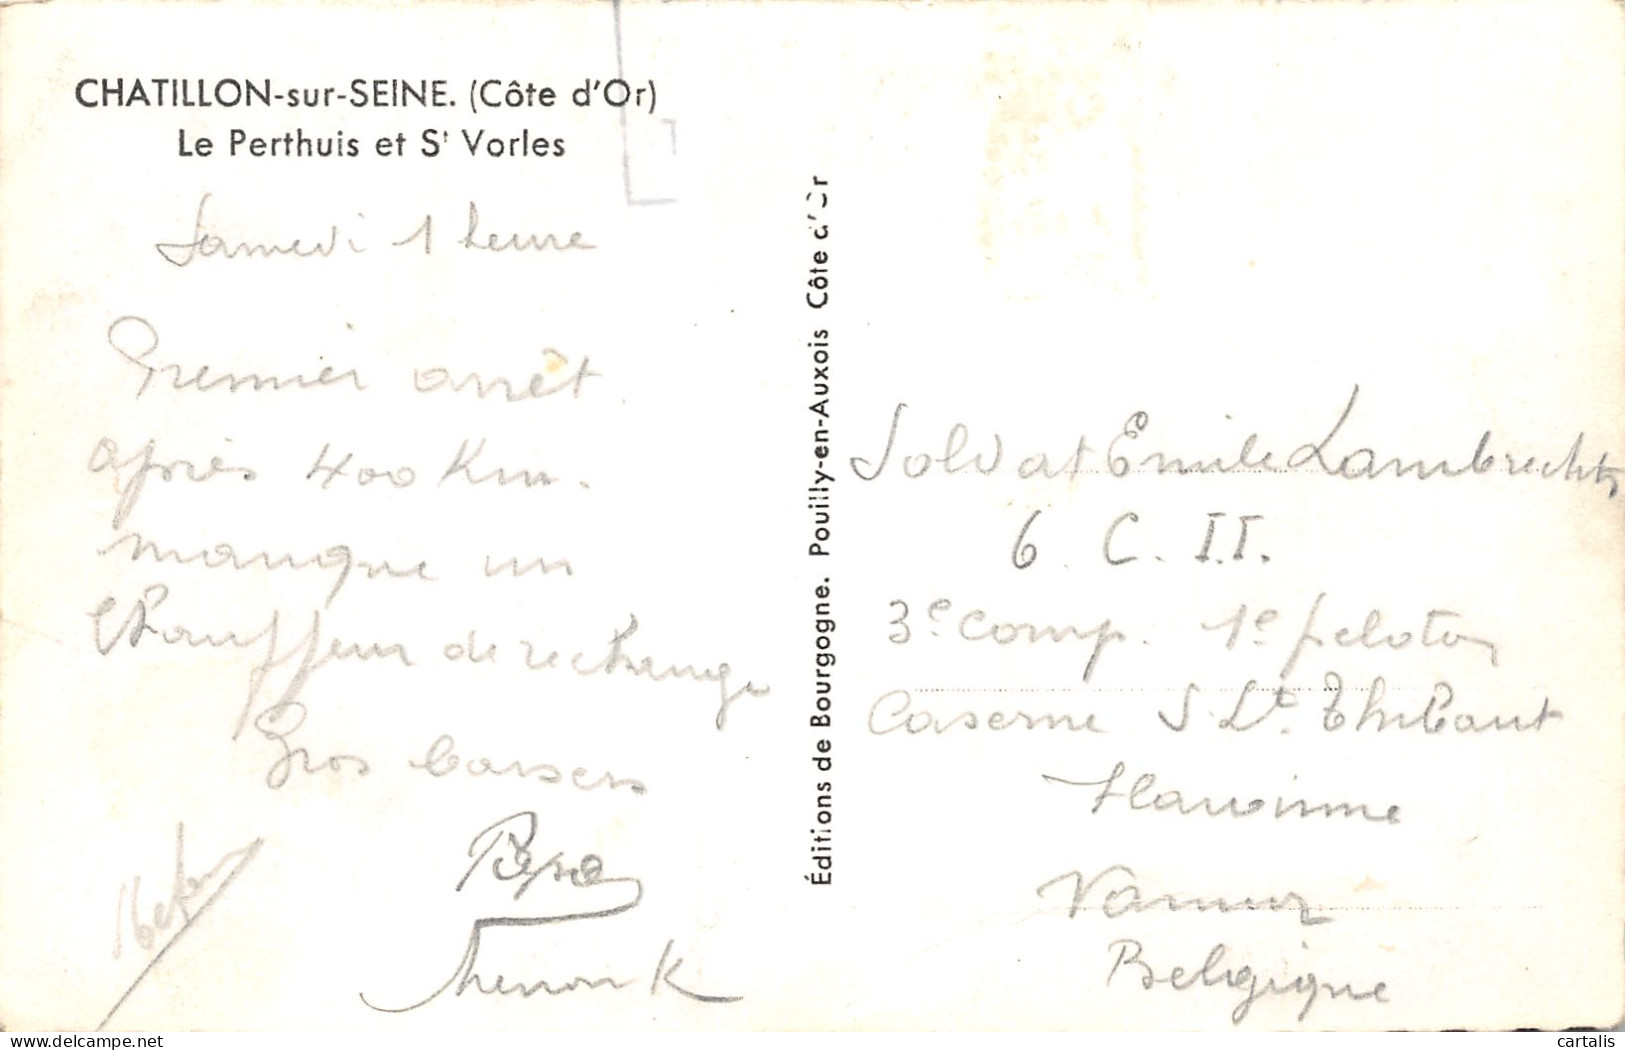 CHATILLON-sur-SEINE. (Côte d'Or)
Le Perthuis et St Vorles
Samedi 1 heure
Premier arrêt
après 400 Km.
manque un
chauffeur de rechange
Gros baisers
Éditions de Bourgogne. Pouilly-en-Auxois Côte d'Or
Soldat Emile Lambrechts
6. C. I. I.
3e comp. 1e peloton
Caserne S Lt. Thibaut
Flawinne
Namur
Belgique
delcampe.net
cartalis